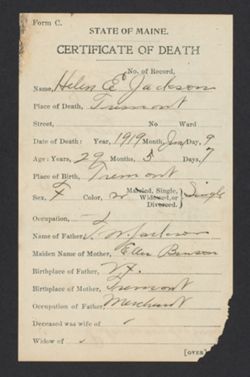 Form C.
STATE OF MAINE.
CERTIFICATE OF DEATH
No. of Record,
Name, Helen E. Jackson
Place of Death, Tremont
Street, No Ward
Date of Death: Year, 1919 Month, Jan Day, 9
Age: Years, 29 Months, 5 Days, 7
Place of Birth, Tremont
Sex, F Color, w Married, Single, Widowed, or Divorced. Single
Occupation,
Name of Father, W. Jackson
Maiden Name of Mother, Ella Benson
Birthplace of Father, Vt.
Birthplace of Mother, Tremont
Occupation of Father, Merchant
Deceased was wife of
Widow of
[OVER]